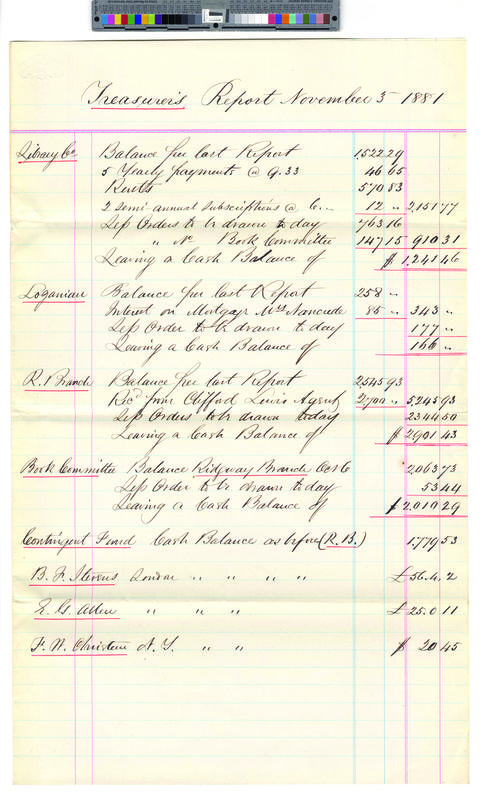 Treasurer's Report November 5 1881
Library Co Balance per last Report 1,522 29
5 Yearly payments @ 9.33 46 65
Rents 570 83
2 Semi-annual subscriptions @ 6.— 12 " 2,151 77
Less Orders to be drawn to day 763 16
" " Book Committee 147 15 910 31
Leaving a Cash Balance of $ 1,241 46
Loganian Balance per last Report 258 "
Interest on Mortgage Mrs 85 " 343 "
Less Order to be drawn to day 177 "
Leaving a Cash Balance of 166 "
R. Branch Balance per last Report 2,545 93
Rec'd from Clifford Lewis Agent 2,700 " 5,245 93
Less Orders to be drawn today 2344 50
Leaving a Cash Balance of $ 2,901 43
Book Committee Balance Ridgway Branch 2,063 73
Less Order to be drawn to day 53 44
Leaving a Cash Balance of $ 2,019 29
Contingent Fund Cash Balance as before (R. B.) 1,779 53
B. F. Stevens London " " " " £ 56. 4. 2
E. G. Allen " " " £ 25. 0 11
F. W. Christern N. Y. " " $ 20 45